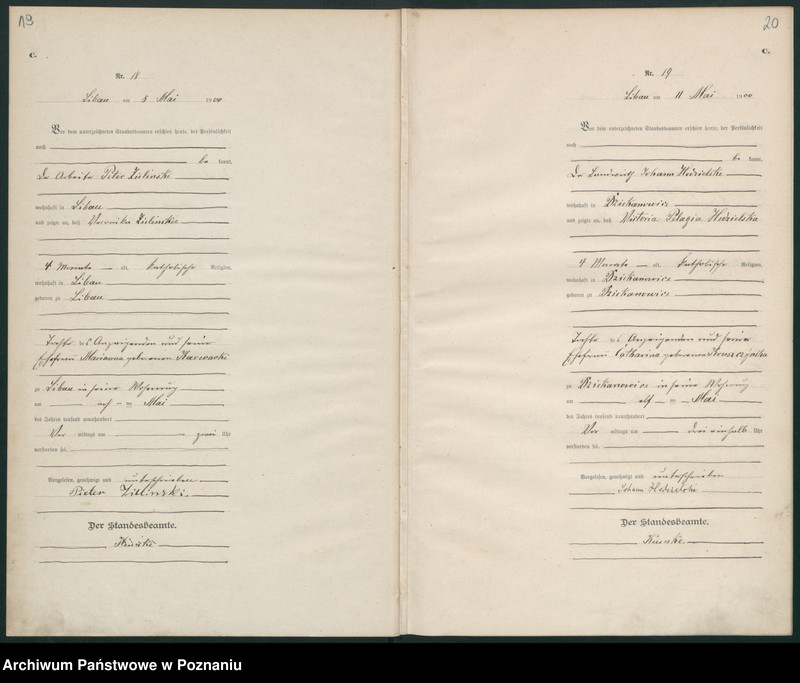 19
C.
Nr. 18
Libau am 8 Mai 1900
Vor dem unterzeichneten Standesbeamten erschien heute, der Persönlichkeit
nach
be kannt,
Der Arbeiter Peter Zielinski
wohnhaft in Libau
und zeigte an, daß Veronika Zielinski
4 Monate alt, katholischer Religion,
wohnhaft in Libau
geboren zu Libau
Tochter des Anzeigenden und seiner
Ehefrau Marianna geborenen
zu Libau in seiner Wohnung
am acht ten Mai
des Jahres tausend neunhundert
Vor mittags um zwei Uhr
verstorben sei.
Vorgelesen, genehmigt und unterschrieben
Pieter Zielinski
Der Standesbeamte.
20
C.
Nr. 19
Libau am 11 Mai 1900
Vor dem unterzeichneten Standesbeamten erschien heute, der Persönlichkeit
nach
be kannt,
Der Landwirth Johann
wohnhaft in Dziekanowice
und zeigte an, daß Viktoria Pelagia
4 Monate alt, katholischer Religion,
wohnhaft in Dziekanowice
geboren zu Dziekanowice
Tochter des Anzeigenden und seiner
Ehefrau Catharina geborenen
zu Dziekanowice in seiner Wohnung
am elf ten Mai
des Jahres tausend neunhundert
Vor mittags um drei einhalb Uhr
verstorben sei.
Vorgelesen, genehmigt und unterschrieben
Johann
Der Standesbeamte.
Archiwum Państwowe w Poznaniu